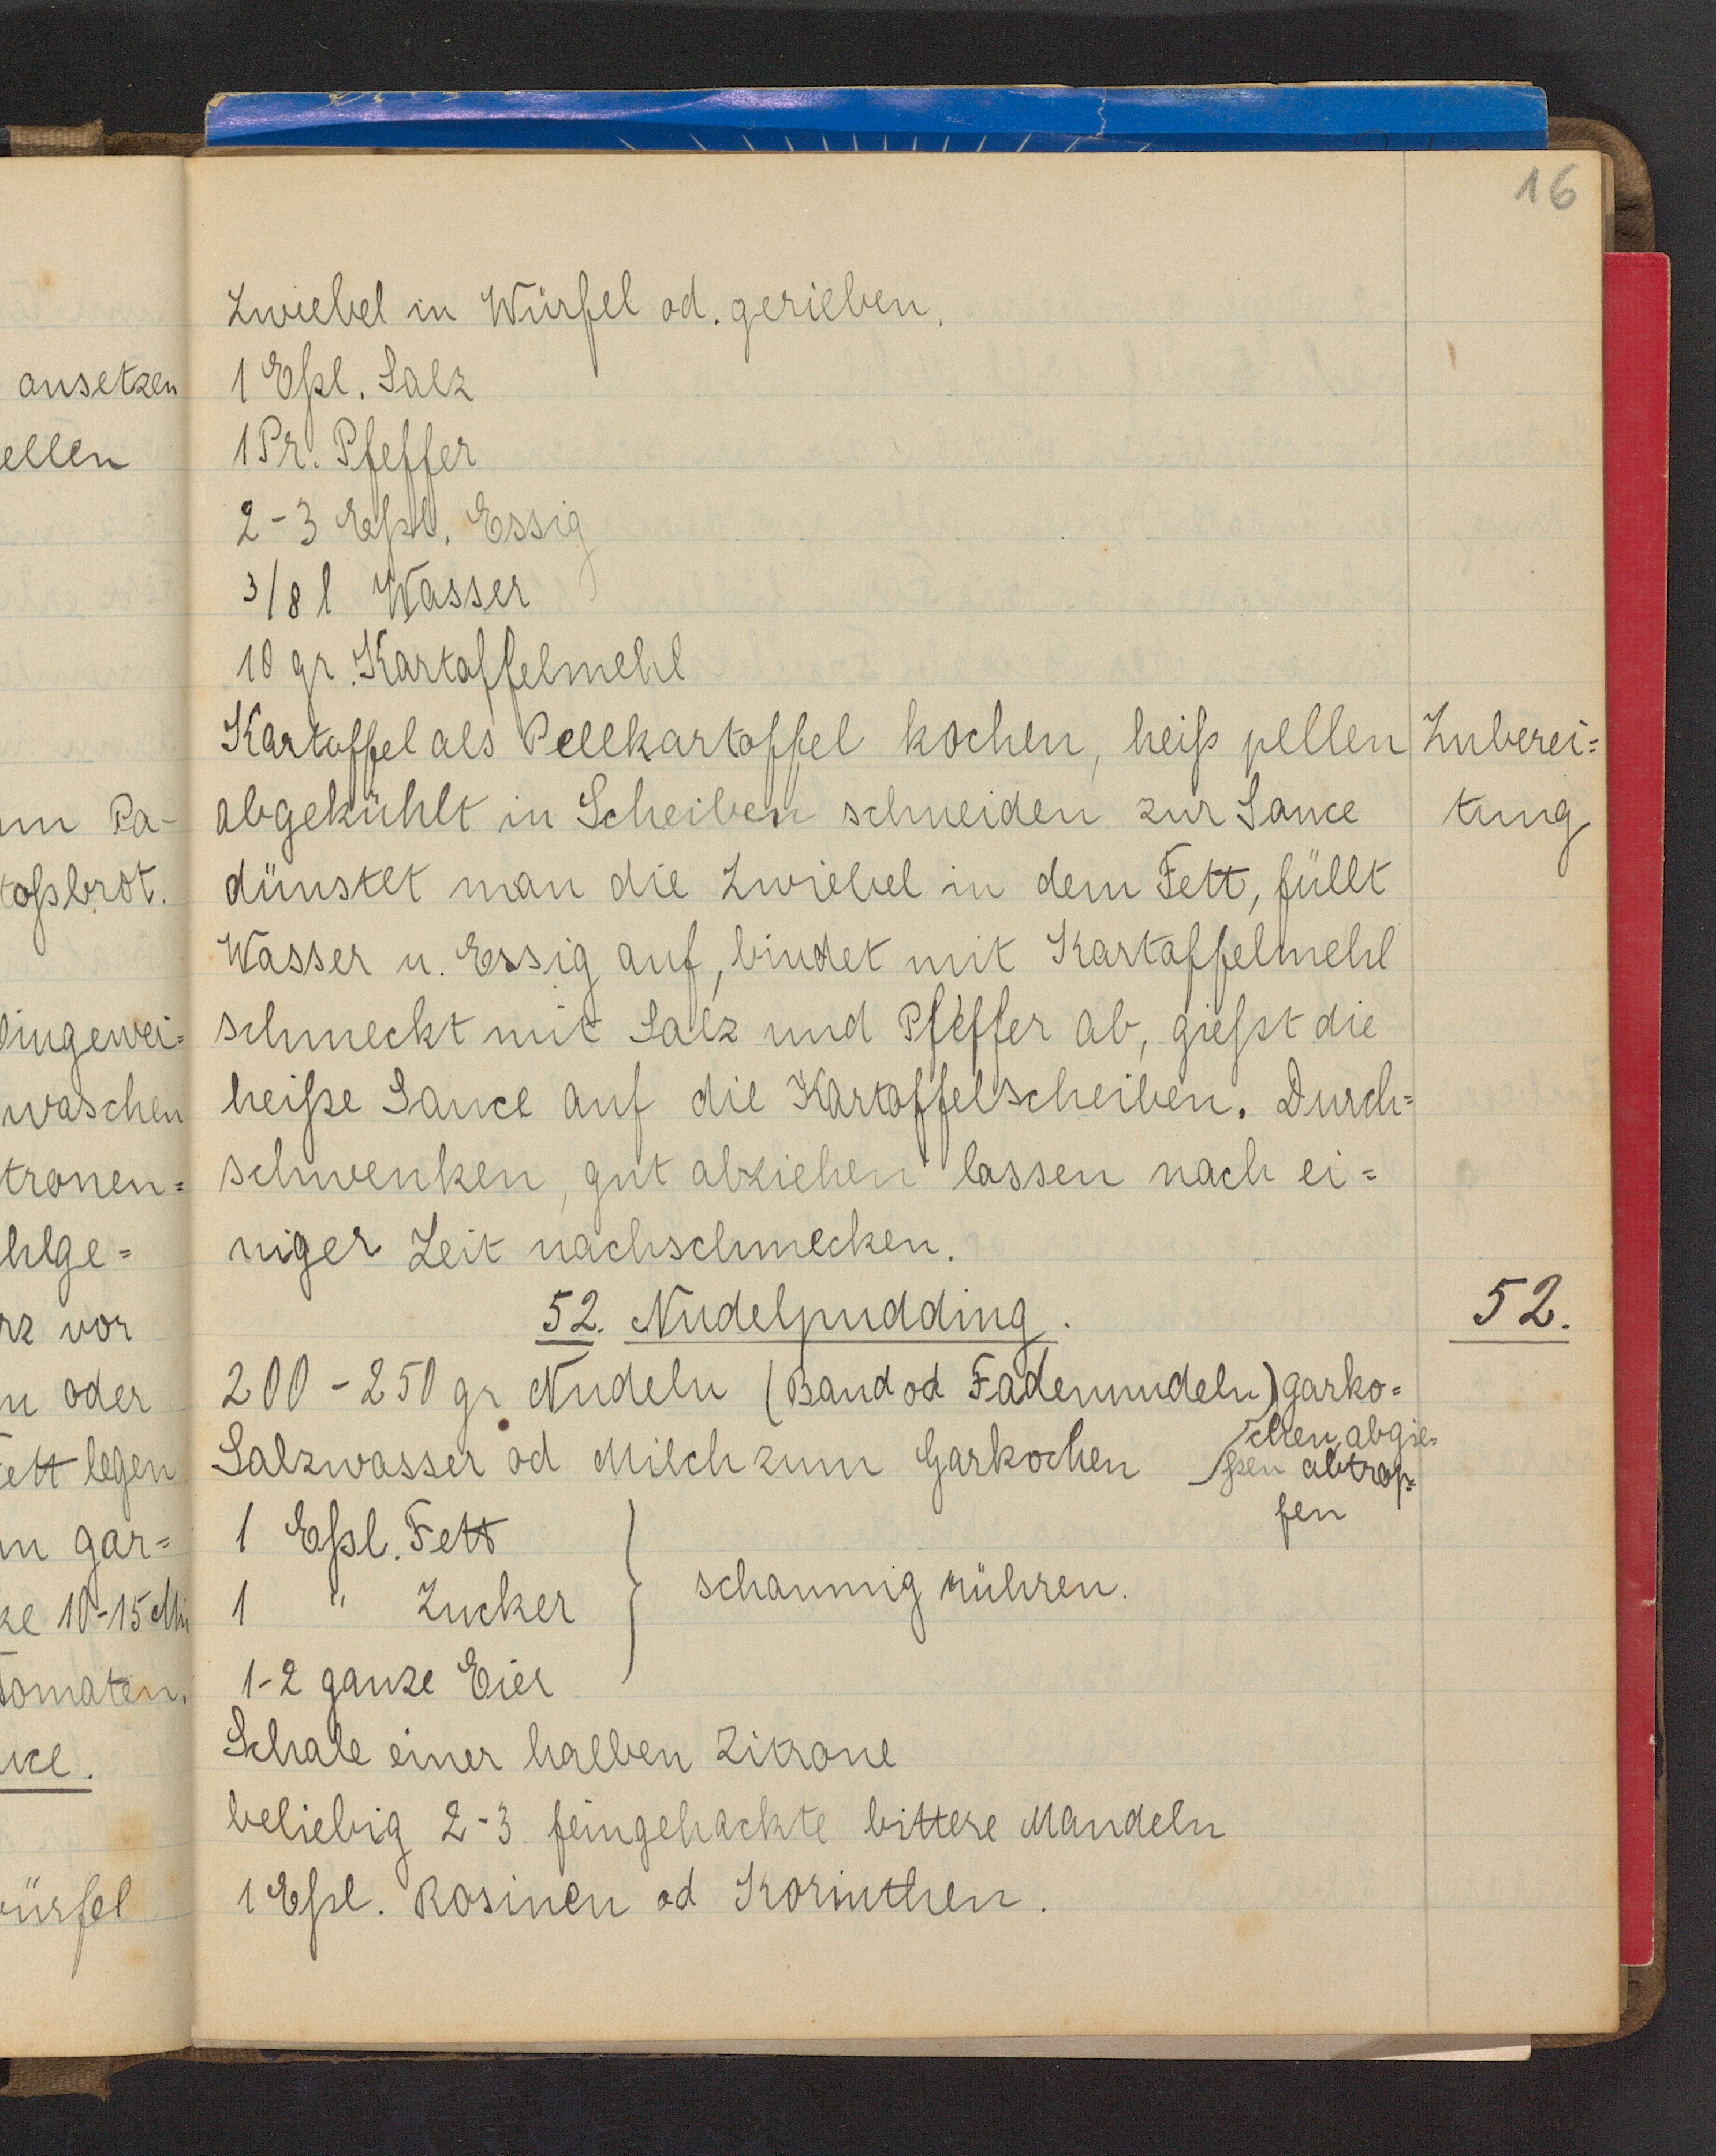 16
Zwiebel in Würfel od. gerieben.
1 Eßl. Salz
1 Pr. Pfeffer
2-3 Eßl. Essig
3/8 l Wasser
10 gr. Kartoffelmehl
Kartoffel als Pellkartoffel kochen, heiß pellen
abgekühlt in Scheiben schneiden zur Sauce
dünstet man die Zwiebel in dem Fett, füllt
Wasser u. Essig auf, bindet mit Kartoffelmehl
schmeckt mit Salz und Pfeffer ab, gießt die
heiße Sauce auf die Kartoffelscheiben. Durch=
schwenken, gut abziehen lassen nach ei=
niger Zeit nachschmecken.
Zuberei=
tung
52. Nudelpudding.
52.
200-250 gr Nudeln (Band od Fadennudeln) garko=
chen, abgie=
ßen abtrop=
fen
Salzwasser od Milch zum Garkochen
1 Eßl. Fett
1 " Zucker
1-2 ganze Eier
schaumig rühren.
Schale einer halben Zitrone
beliebig 2-3 feingehackte bittere Mandeln
1 Eßl. Rosinen od Korinthen.
ansetzen
ellen
Pa-
oßbrot.
ingewei=
waschen
tronen=
hlge=
rz vor
oder
ett legen
gar=
ze 10-15 Mi
Tomaten.
uce.
ürfel